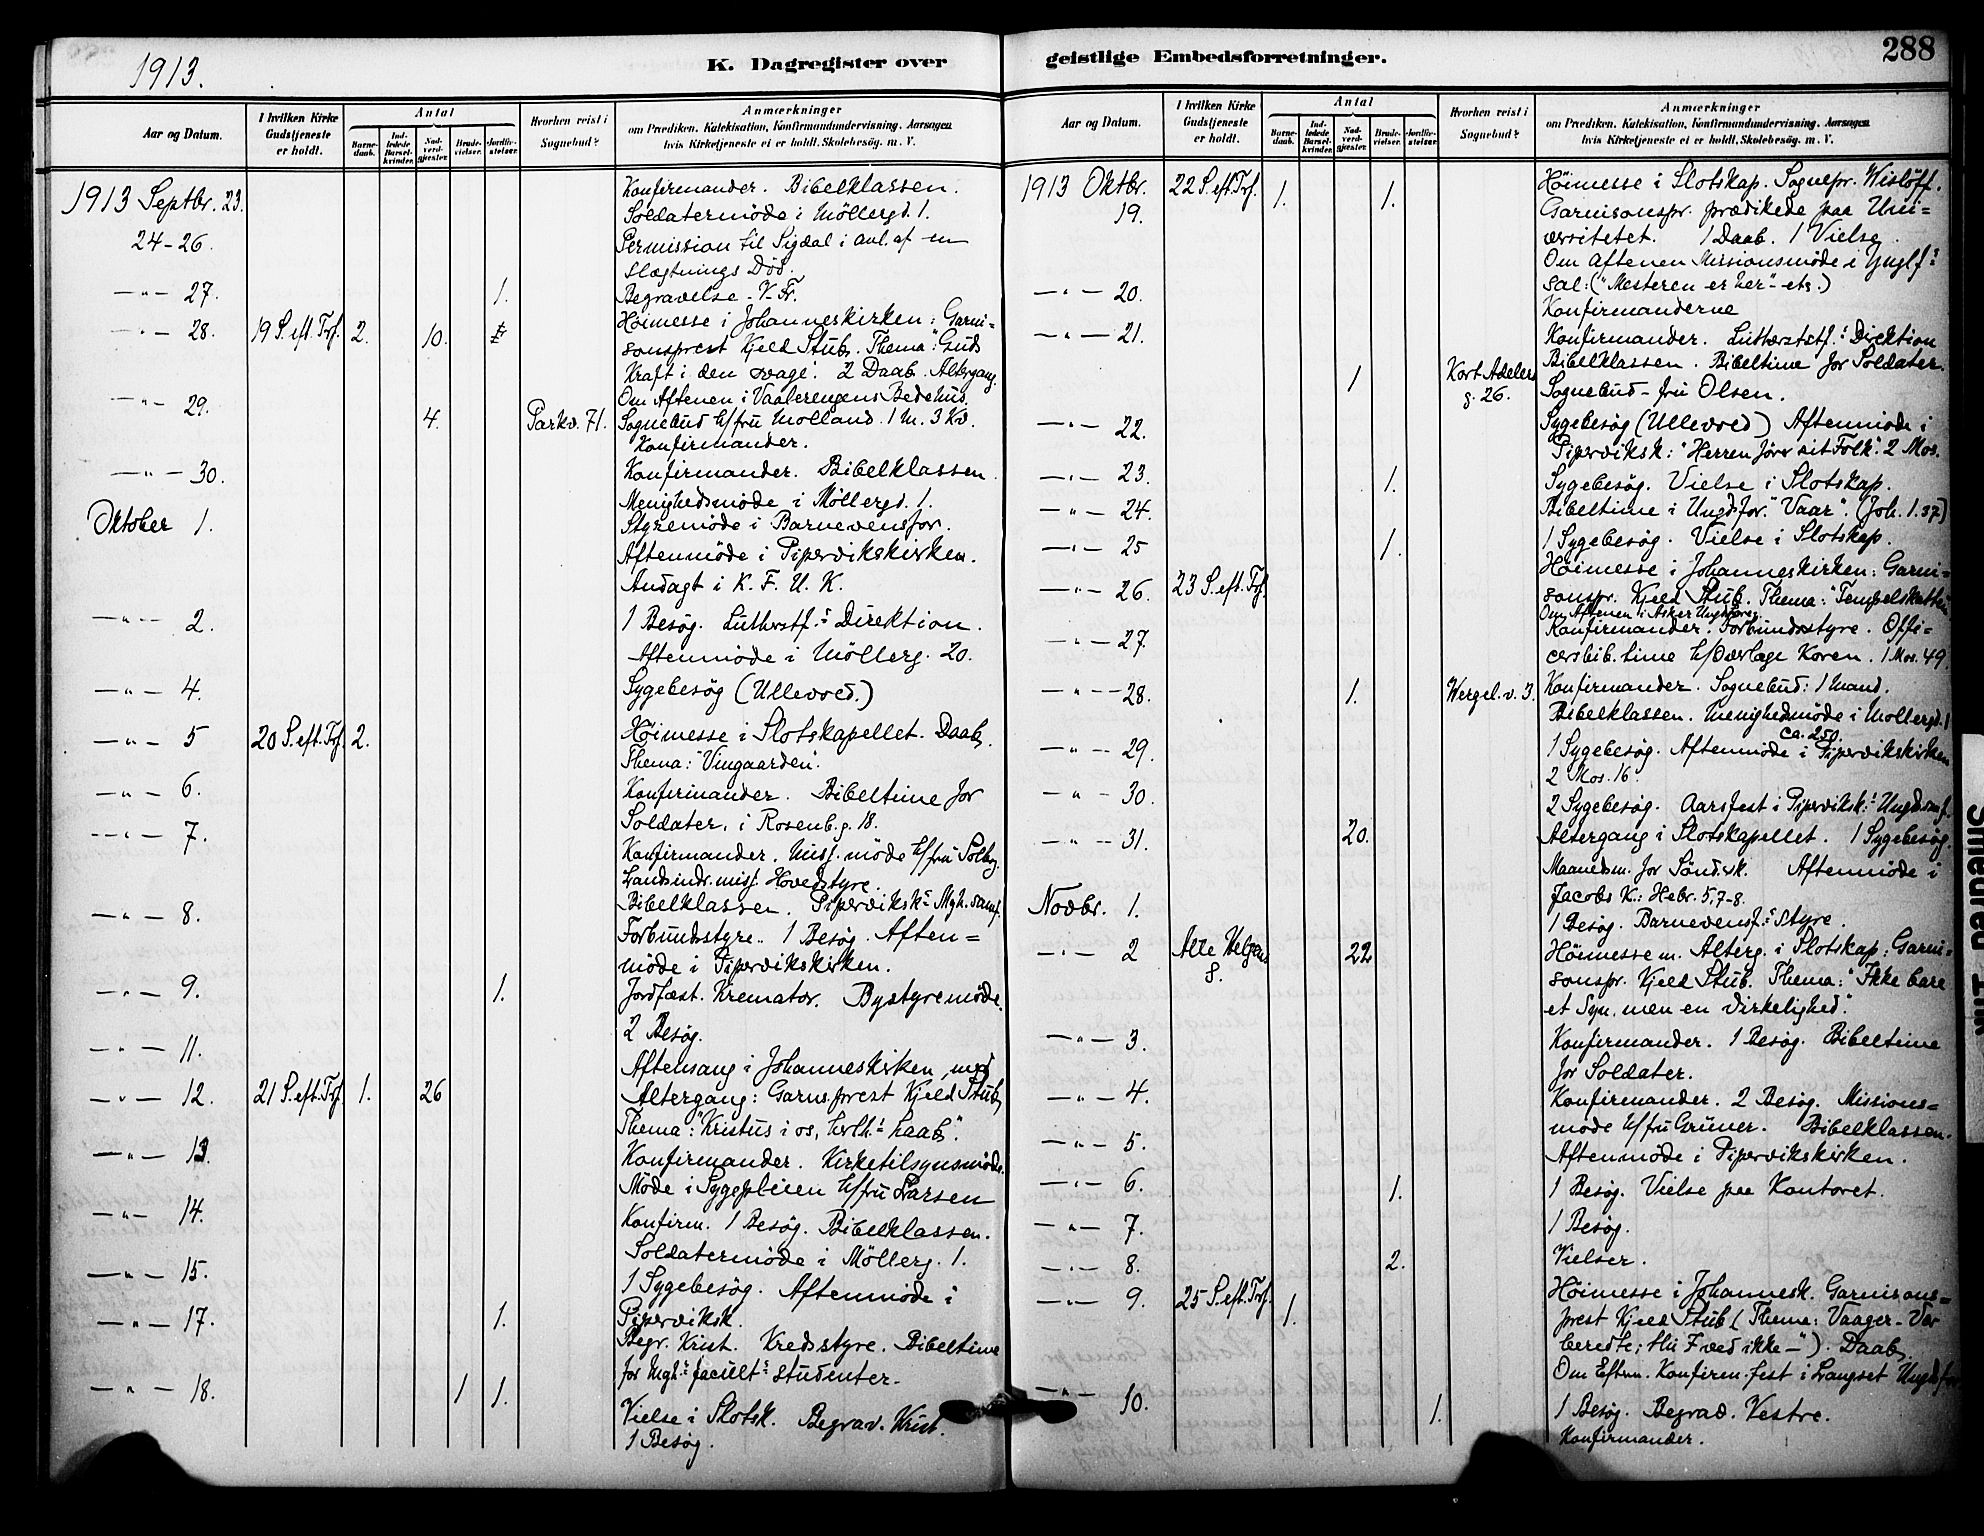 1913.
K. Dagregister over
Aar og Datum.
I hvilken Kirke Gudstjeneste er holdt.
Antal
Barne-daab.
Ind-ledede Barsel-kvinder.
Nad-verd-gjester.
Brude-vielser.
Jordfæ-stelser.
Hvorhen reist i Sognebud?
Anmærkninger
om Prædiken, Katekisation, Konfirmandundervisning, Aarsagen
hvis Kirketjeneste ei er holdt, Skolebesøg. m. V.
1913 Septbr. 23. Konfirmander. Bibelklassen.
Soldatermöde i Möllergd. 1.
24-26. Permission til Sigdal i anl. af en
slægtnings Död.
—„— 27. 1. Begravelse. V. Fr.
—„— 28. 19 S. eft. Trf. 2. 10. Höimesse i Johanneskirken: Garni=
sonsprest Kjeld Stub. Thema: "Guds
Kraft i den svage". 2 Daab. Altergang.
Om Aftenen i Vaalerengens Bedehus.
—„— 29. 4. Parkv. 71. Sognebud h/fru Molland. 1 M. 3 Kv.
Konfirmander.
—„— 30. Konfirmander. Bibelklassen.
Menighedsmöde i Möllergd. 1.
Oktober 1. Styremöde i Barnevensfor.
Aftenmöde i Pipervikskirken.
Andagt i K. F. U. K.
—„— 2. 1 Besög. Lutherstf.s Direktion.
Aftenmöde i Möllerg. 20.
—„— 4. Sygebesög (Ullevold.)
—„— 5 20 S. eft. Trf. 2. Höimesse i Slotskapellet. Daab.
Thema: "Vingaarden".
—„— 6. Konfirmander. Bibeltime for
Soldater, i Rosenb.g. 18.
—„— 7. Konfirmander. Miss. möde h/fru Solby.
Landsindr.miss. Hovedstyre.
Bibelklassen. Piperviksk.s Mgh.samf.
—„— 8. Forbundsstyre. 1 Besög. Aften=
möde i Pipervikskirken.
—„— 9. 1. Jordfæst. Kremator. Bystyremöde.
2 Besög.
—„— 11. Aftensang i Johanneskirken, med
—„— 12. 21 S. eft. Trf. 1. 26 Altergang: Garns.prest Kjeld Stub,
Thema: "Kristus i os, herlh.s haab".
—„— 13. Konfirmander. Kirketilsynsmöde.
Möde i Sygepleien h/fru Larsen
—„— 14. Konfirm. 1 Besög. Bibelklassen.
Soldatermöde i Möllerg. 1.
—„— 15. 1 Sygebesög. Aftenmöde i
Piperviksk.
—„— 17. 1. Begr. Krist. Kredsstyre. Bibeltime
for Mgh.s facult.s studenter.
—„— 18. 1 1. Vielse i Slotsk. Begrav. Krist.
1 Besög.
geistlige Embedsforretninger.
288
Aar og Datum.
I hvilken Kirke Gudstjeneste er holdt.
Antal
Barne-daab.
Ind-ledede Barsel-kvinder.
Nad-verd-gjester.
Brude-vielser.
Jordfæ-stelser.
Hvorhen reist i Sognebud?
Anmærkninger
om Prædiken, Katekisation, Konfirmandundervisning, Aarsagen
hvis Kirketjeneste ei er holdt, Skolebesøg. m. V.
1913 Oktbr. 19. 22 S. eft. Trf. 1. 1. Höimesse i Slotskap. Sognepr. Wislöff.
Garnisonspr. prædikede paa Uni=
versitetet. 1 Daab. 1 Vielse.
Om Aftenen Missionsmöde i Ynglf.s
Sal: ("Mesteren er her" - etc.)
—„— 20. Konfirmanderne
—„— 21. Konfirmander. Lutherstf.s Direktion
Bibelklassen. Bibeltime for Soldater.
1 Kort Adelers g. 26. Sognebud - fru Olsen.
—„— 22. Sygebesög (Ullevold) Aftenmöde i
Piperviksk: "Herren förer sit Folk". 2 Mos.
—„— 23. 1. Sygebesög. Vielse i Slotskap.
—„— 24. Bibeltime i Ungdsfor. "Vaar". (Joh. 1. 37)
—„— 25 1. 1 Sygebesög. Vielse i Slotskap.
—„— 26. 23 S. eft. Trf. Höimesse i Johanneskirken: Garni=
sonspr. Kjeld Stub. Thema: "Tempelskatten"
Om Aftenen i Asker Ungdfören.
—„— 27. Konfirmander. Forbundsstyre. Offi=
cersbib.time h/Overlæge Koren. 1 Mos. 49.
—„— 28. 1. Wergel.v. 3. Konfirmander. Sognebud: 1 Mand.
Bibelklassen. Menighedmöde i Möllergd. 1
ca. 250.
—„— 29. 1 Sygebesög. Aftenmöde i Pipervikskirken
2 Mos. 16
—„— 30. 2 Sygebesög. Aarsfest i Piperviksk.s Ungdsmf.
—„— 31. 20. Altergang i Slotskapellet. 1 Sygebesög.
Maanedsm. for Söndsk. Aftenmöde i
Jacobs K.: Hebr. 5, 7-8.
Novbr. 1. 1 Besög. Barnevensf.s Styre.
—„— 2 Alle Helgens S. 22 Höimesse m. Alterg. i Slotskap: Garni=
sonspr. Kjeld Stub. Thema: "Ikke bare
et Syn, men en Virkelighed".
—„— 3. Konfirmander. 1 Besög. Bibeltime
for Soldater.
—„— 4. Konfirmander. 2 Besög. Missions=
möde h/fru Grüner. Bibelklassen.
—„— 5. Aftenmöde i Pipervikskirken.
—„— 6. 1. 1 Besög. Vielse paa Kontoret.
—„— 7. 1 Besög.
—„— 8. 2. Vielser.
—„— 9. 25 S. eft. Trf. 1. Höimesse i Johannesk. Garnisons=
prest Kjeld Stub (Thema: Vaager - Vær
beredte; thi I ved ikke -") Daab.
Om Eftm. Konfirm.fest i Langset Ungdsfor
—„— 10. 1. 1 Besög. Begrav. Vestre.
Konfirmander.